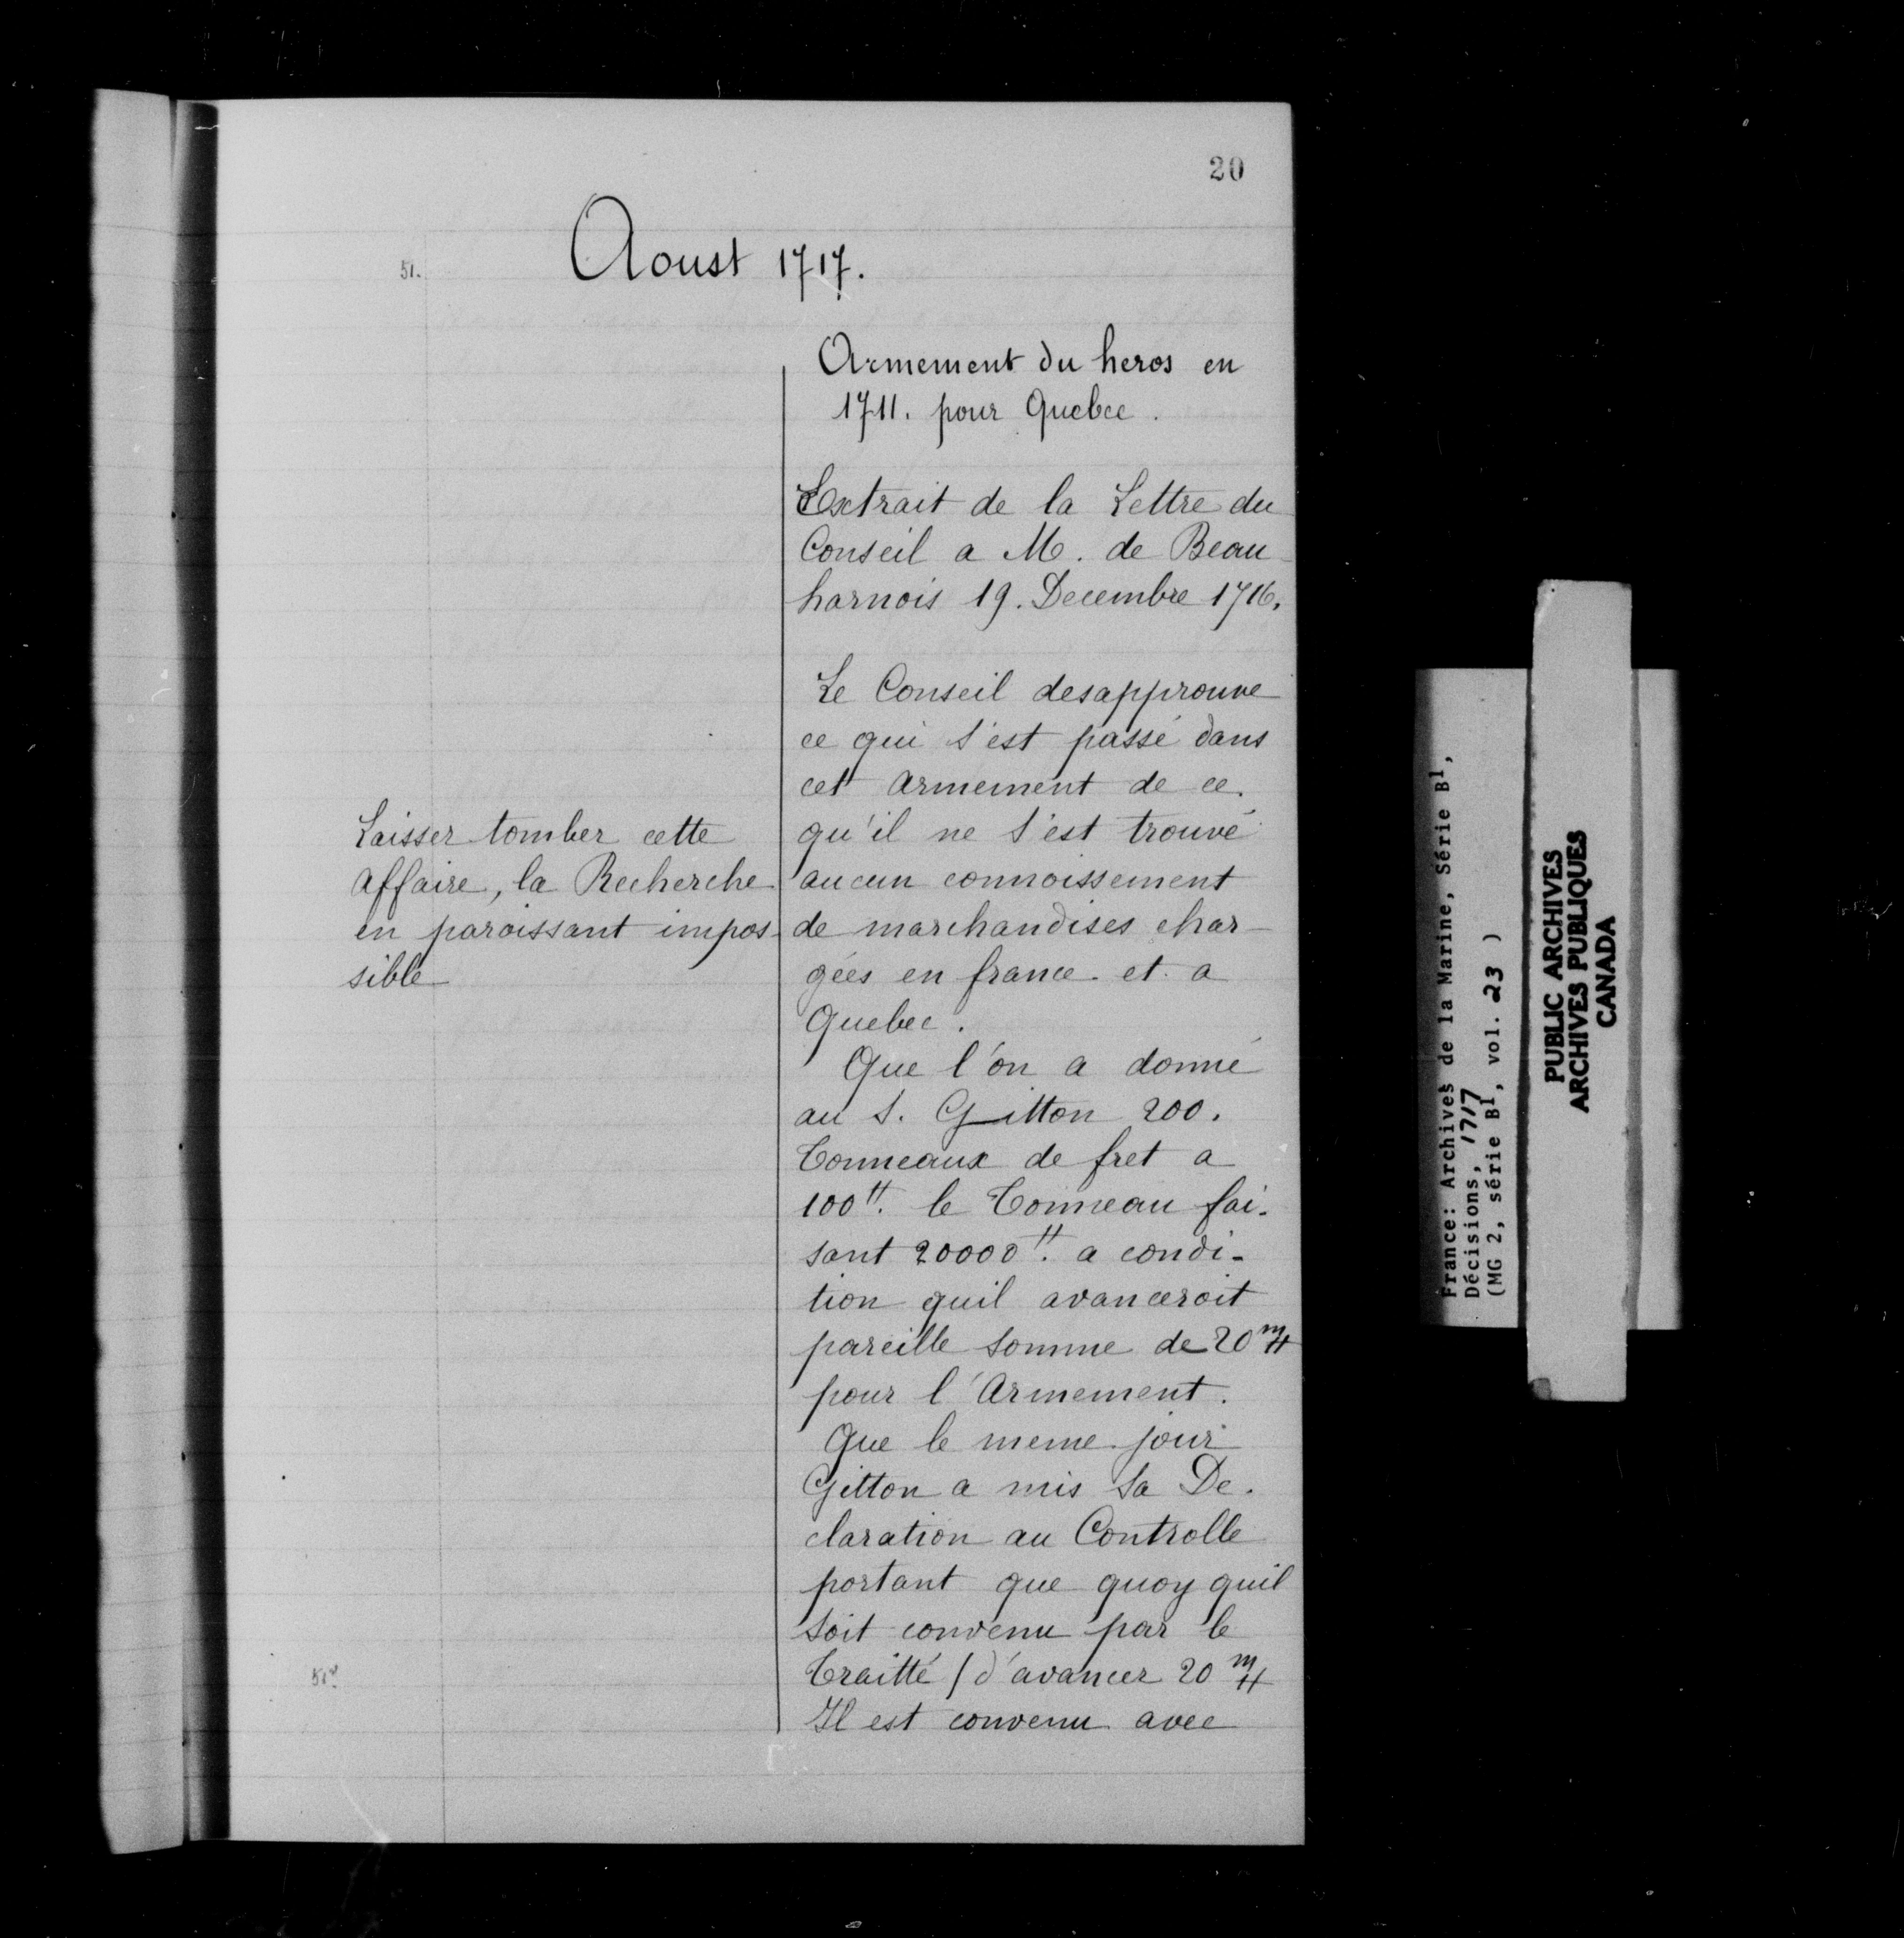 20
51.
Aoust 1717.
Armement du heros en
1711. pour Quebec.
Extrait de la Lettre du
Conseil a M. de Beau
harnois 19. Decembre 1716.
Le Conseil desapprouve
ce qui s'est passé dans
cet armement de ce
qu'il ne s'est trouvé
aucun connoissement
de marchandises char-
gées en france et a
Quebec.
Que l'on a donné
au S. Gitton 200.
Tonneaux de fret a
100tt. le Tonneau fai-
sant 20000tt. a condi-
tion quil avanceroit
pareille somme de 20m tt
pour l'Armement.
Que le meme jour
Gitton a mis sa De-
claration au Controlle
portant que quoy quil
soit convenu par le
Traitté / d'avancer 20m tt
Il est convenu avec
Laisser tomber cette
affaire, la Recherche
en paroissant impos-
sible
51v
France: Archives de la Marine, Série B1,
Décisions, 1717
(MG 2, série B1, vol. 23 )
PUBLIC ARCHIVES
ARCHIVES PUBLIQUES
CANADA